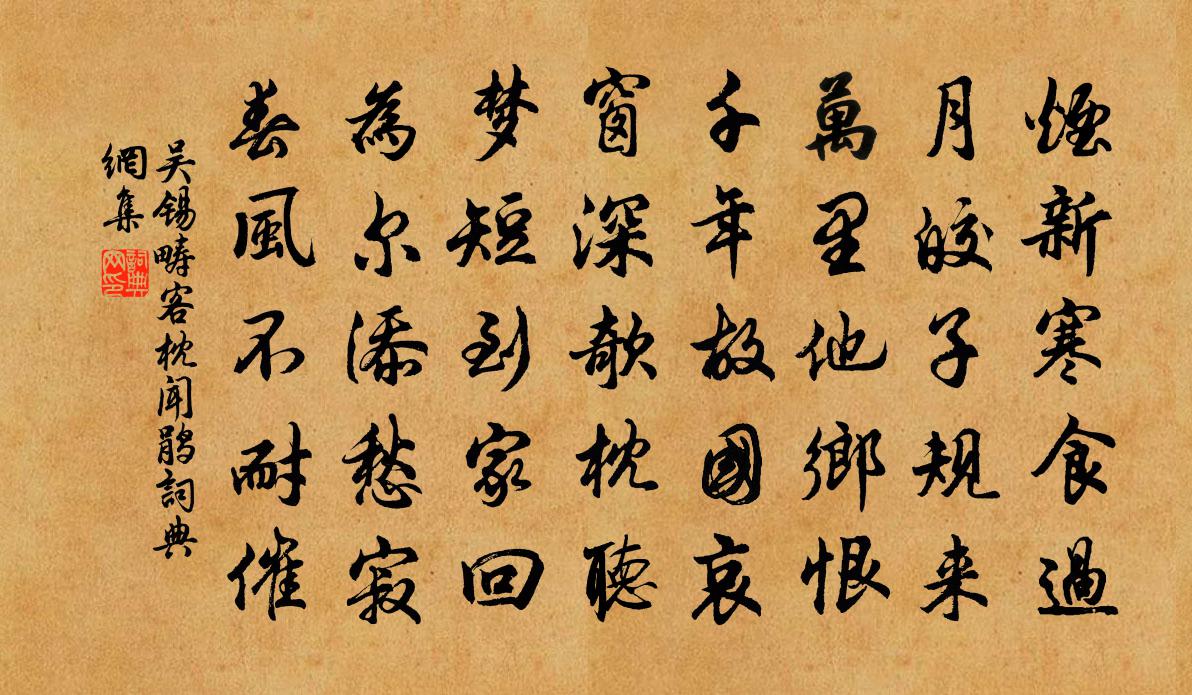 煙新寒食過
月皎子規来
萬里他鄉恨
千年故國哀
窗深欹枕聽
梦短到家回
為尔添愁寂
春風不耐催
吴锡疇客枕闻鹃詞典
網集
詞典網印